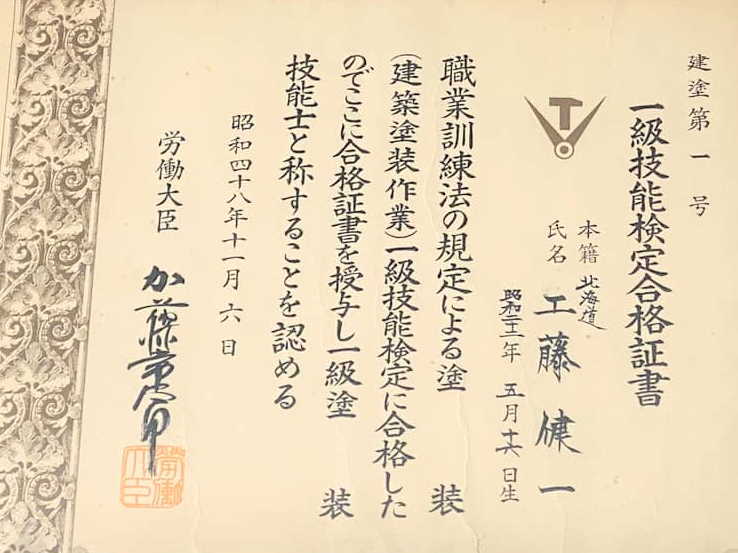 建塗第一号
一級技能検定合格証書
本籍 北海道
氏名 工藤健一
昭和二十二年 五月十六日生
職業訓練法の規定による塗装
(建築塗装作業)一級技能検定に合格した
のでここに合格証書を授与し一級塗装
技能士と称することを認める
昭和四十八年十一月六日
労働大臣 加藤常太郎
労働大臣